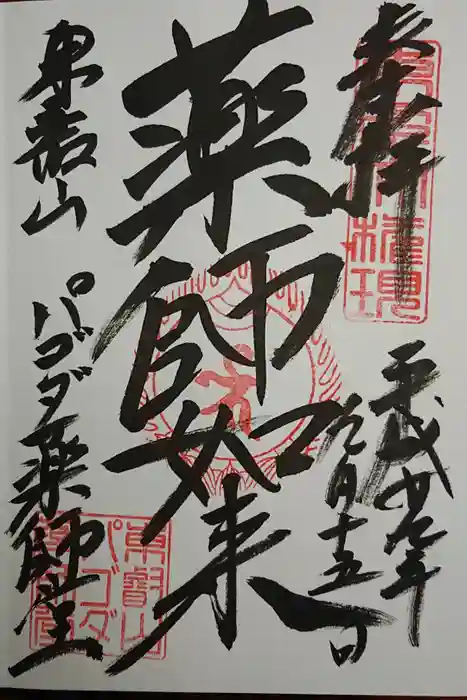 奉拝
平成廿九年
九月十五日
薬師如来
東叡山
パゴダ薬師堂
東叡山
パゴダ